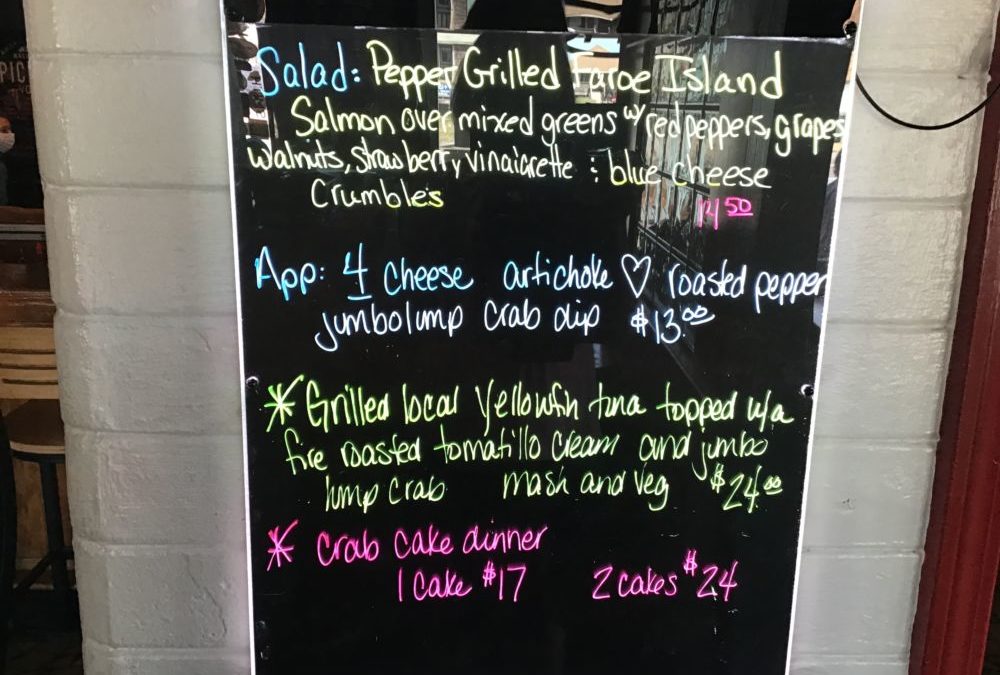 Salad: Pepper Grilled Faroe Island
Salmon over mixed greens w/ red peppers, grapes
Walnuts, strawberry vinaicrette & blue cheese
Crumbles
14 50
App: 4 cheese artichoke ♡ roasted pepper
jumbolump crab dip $13.00
* Grilled local Yellowfin tuna topped w/a
fire roasted tomatillo cream and jumbo
lump crab mash and veg $24.00
* Crab cake dinner
1 cake $17 2 cakes $24